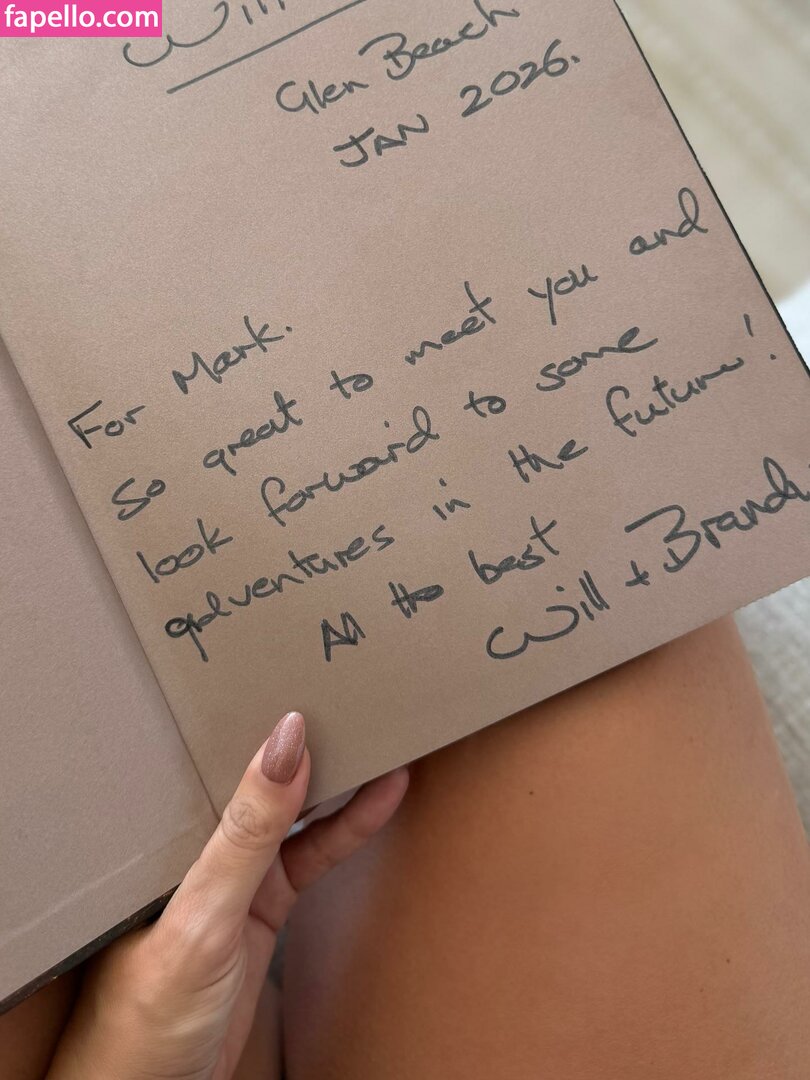 fapello.com
Will
Glen Beach
JAN 2026.
For Mark.
So great to meet you and
look forward to some
adventures in the future!
All the best
Will + Brandi